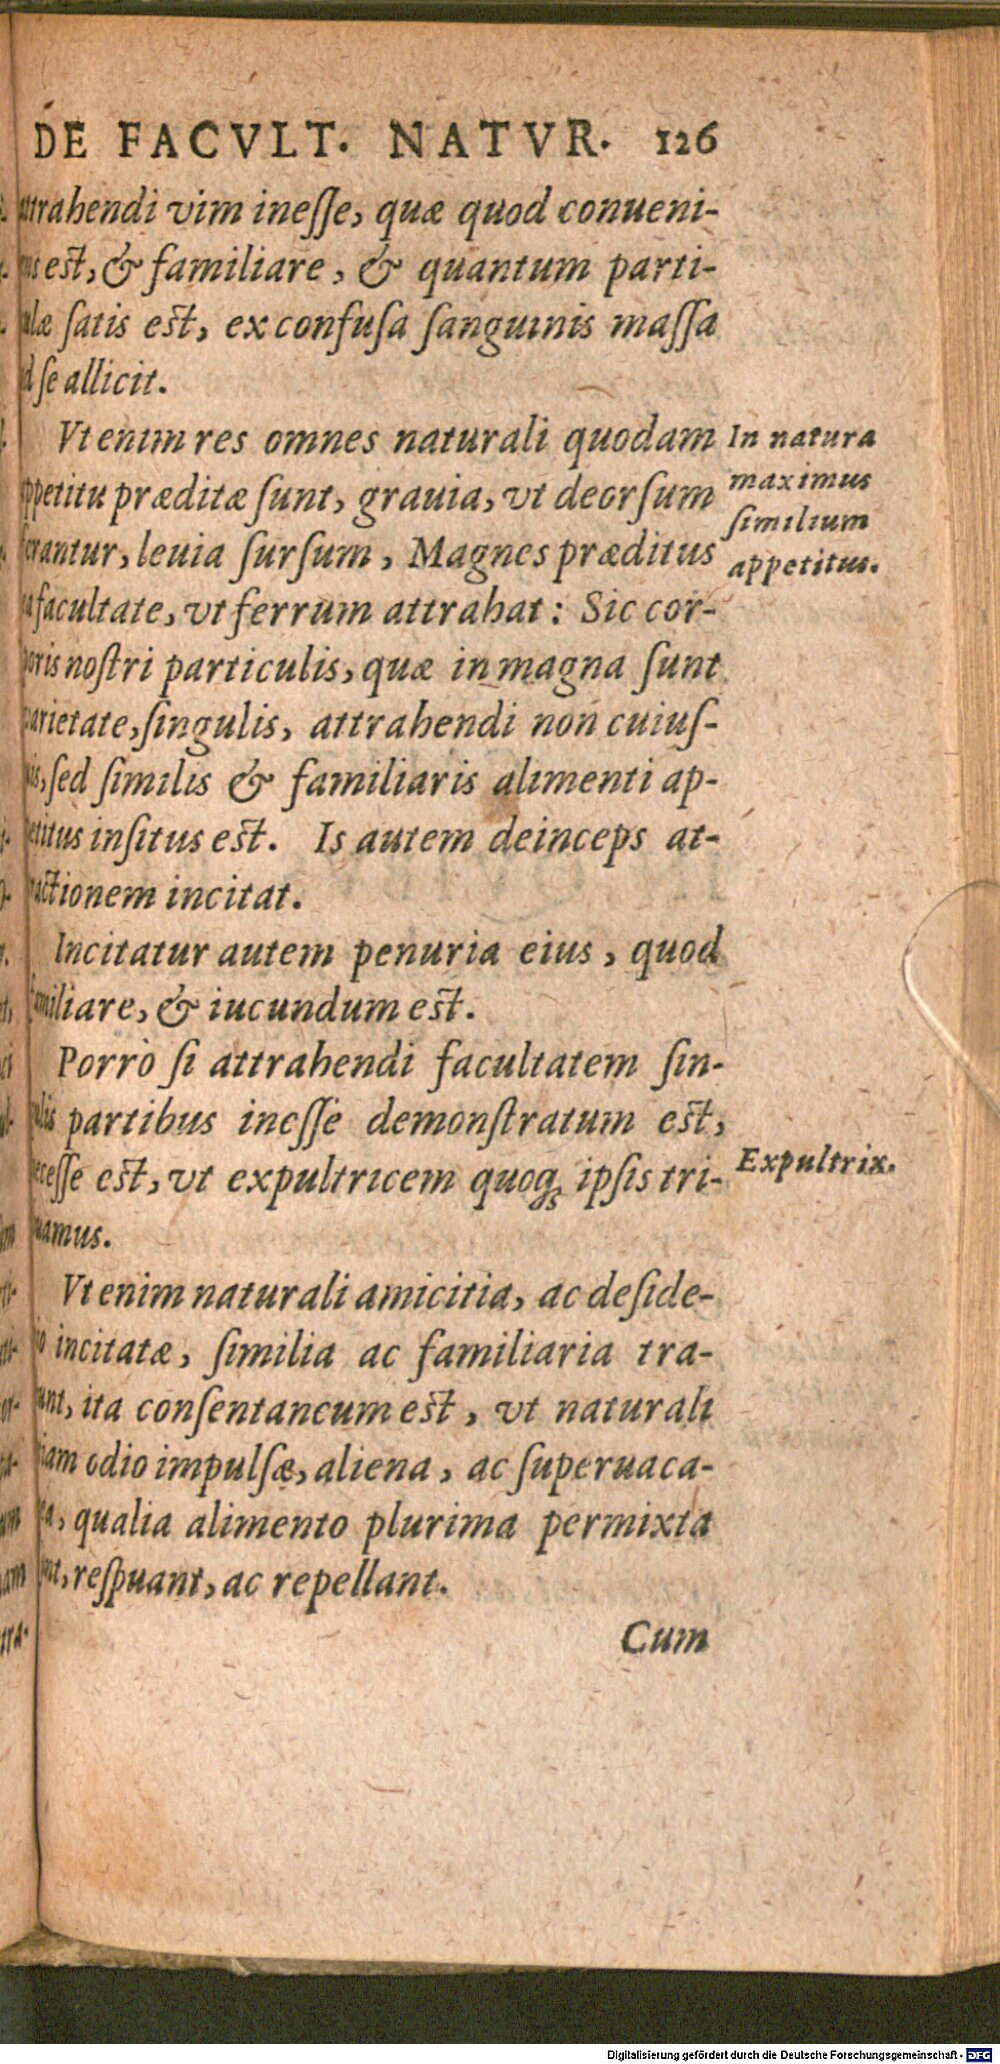 DE FACVLT. NATVR. 126
attrahendi vim ineſſe, quæ quod conueni-
est, & familiare, & quantum parti-
ſatis est, ex confuſa ſanguinis maſſa
ſe allicit.
Vt enim res omnes naturali quodam
appetitu præditæ ſunt, grauia, vt deorſum
ferantur, leuia ſurſum, Magnes præditus
facultate, vt ferrum attrahat: Sic cor-
poris noſtri particulis, quæ in magna ſunt
varietate, ſingulis, attrahendi non cuiuſ-
ſed ſimilis & familiaris alimenti ap-
petitus inſitus est. Is autem deinceps at-
tractionem incitat.
Incitatur autem penuria eius, quod
familiare, & iucundum est.
Porrò ſi attrahendi facultatem ſin-
partibus ineſſe demonſtratum est,
neceſſe est, vt expultricem quoq; ipſis tri-
Vt enim naturali amicitia, ac deſide-
incitatæ, ſimilia ac familiaria tra-
ita conſentaneum est, vt naturali
odio impulſæ, aliena, ac ſuperuaca-
qualia alimento plurima permixta
reſpuant, ac repellant.
Cum
In natura
maximus
ſimilium
appetitus.
Expultrix.
Digitalisierung gefördert durch die Deutsche Forschungsgemeinschaft - DFG